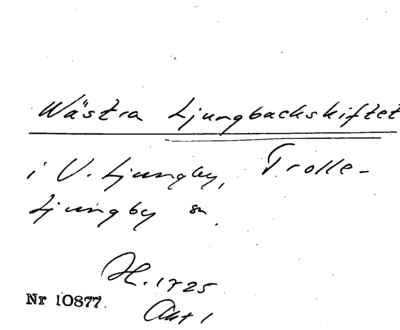 Wästra Ljungbackskiftet
i V. Ljungby, Trolle-
Ljungby sn.
H. 1725
Nr 10877.
Akt 1